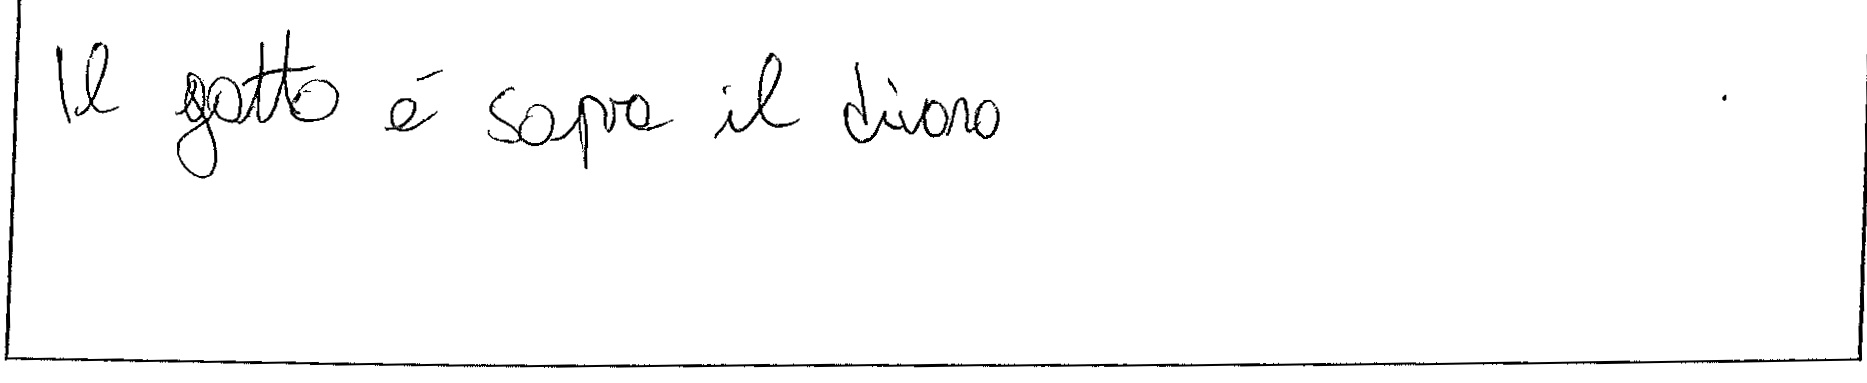 Il gatto é sopra il divano